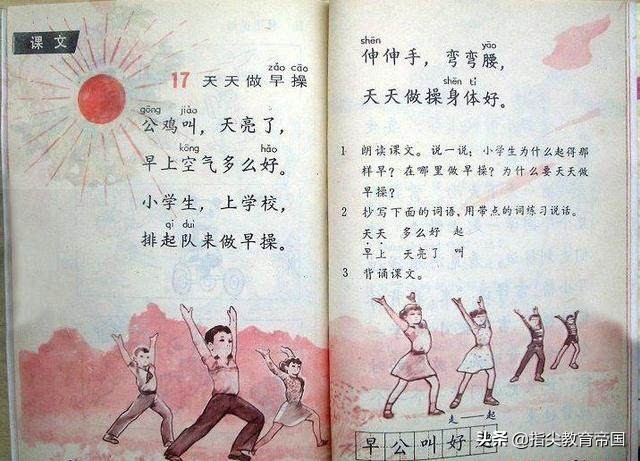 课文
zǎo cāo
17 天天做早操
gōng jiào
公鸡叫，天亮了，
kōng hǎo
早上空气多么好。
小学生，上学校，
qǐ duì
排起队来做早操。
shēn yāo
伸伸手，弯弯腰，
shēn tǐ
天天做操身体好。
1 朗读课文。说一说：小学生为什么起得那
样早？在哪里做早操？为什么要天天做
早操？
2 抄写下面的词语，用带点的词练习说话。
天天 多么好 起
早上 天亮了 叫
3 背诵课文。
走——起
早公叫好
头条 @指尖教育帝国